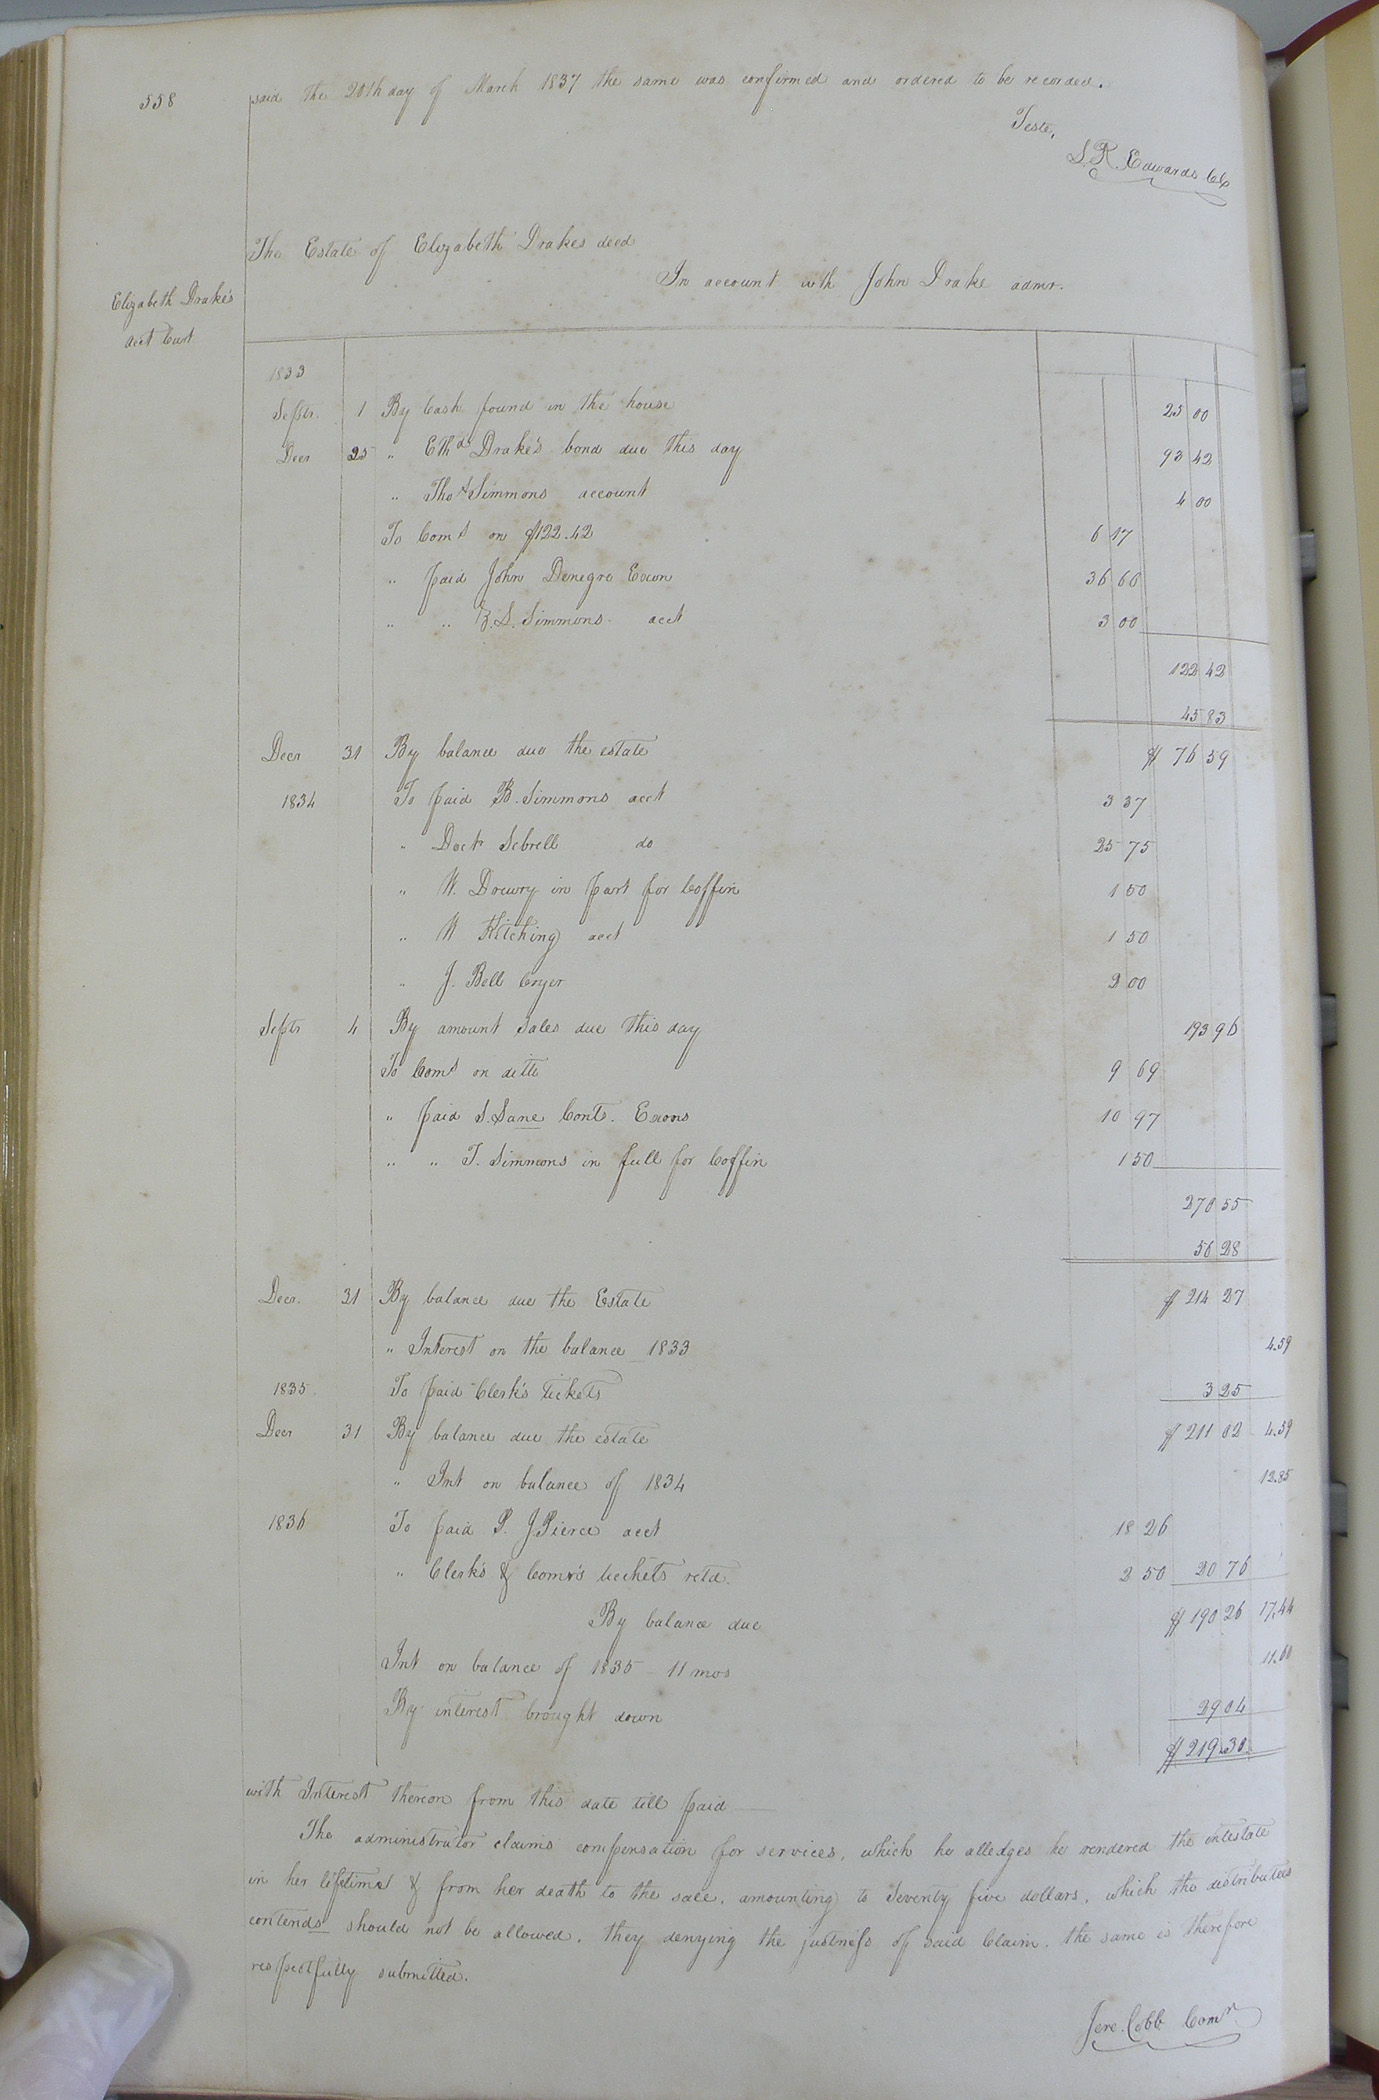 558
said the 20th day of March 1837 the same was confirmed and ordered to be recorded.
Teste,
L. R. Edwards CC
The Estate of Elizabeth Drakes decd
In account with John Drake admr.
Elizabeth Drake's
acct Curt
1833
Septr. 1 By Cash found in the house 25 00
Decr 25 " Ethd. Drake's bond due this day 93 42
" Thos Simmons account 4 00
To Coms on $122.42 6 17
" paid John Denegre Exon 36 66
" " B. S. Simmons acct 3 00
122 42
45 83
Decr 31 By balance due the estate $ 76 59
1834 To paid B. Simmons acct 3 37
" Doctr Sebrell do 25 75
" W. Drewry in part for Coffin 1 50
" W Kitching acct 1 50
" J. Bell Cryer 2 00
Septr 4 By amount Sales due this day 193 96
To Coms on ditto 9 69
" paid S. Lane Conts. Exons 10 97
" " T. Simmons in full for Coffin 1 50
270 55
56 28
Decr. 31 By balance due the Estate $ 214 27
" Interest on the balance 1833 4.59
1835. To paid Clerk's tickets 3 25
Decr 31 By balance due the estate $ 211 02 4.59
" Int on balance of 1834 12.85
1836 To paid P. J Pierce acct 18 26
" Clerk's & Comr's tickets retd. 2 50 20 76
By balance due $ 190 26 17.44
Int on balance of 1835 - 11 mos 11.60
By interest brought down 29 04
$ 219.30
with Interest thereon from this date till paid
The administrator claims compensation for services, which he alledges he rendered the intestate
in her lifetime & from her death to the sale, amounting to Seventy five dollars, which the distributees
contends should not be allowed, they denying the justness of said Claim. the same is therefore
respectfully submitted.
Jere. Cobb Comr.